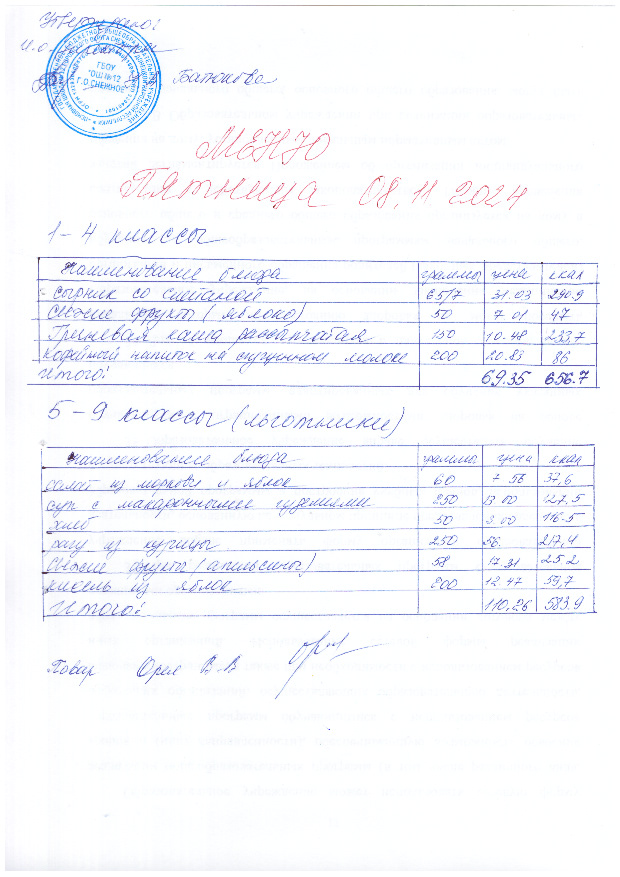 Утверждено:
И.о. директора
Батюкова
ГБОУ
"ОШ №12
Г.О. СНЕЖНОЕ"
МЕНЮ
Пятница 08.11.2024
1-4 классы
Наименование блюда граммы цена ккал
сырник со сметаной 65/7 31.03 290.9
Свежие фрукты (яблоко) 50 7.01 47
Гречневая каша рассыпчатая 150 10.48 233,7
Кофейный напиток на сгущенном молоке 200 20.83 86
Итого: 69.35 656.7
5-9 классы (льготники)
Наименование блюда граммы цена ккал
салат из моркови и яблок 60 7.56 37,6
суп с макаронными изделиями 250 13.00 127,5
хлеб 50 3.00 116.5
рагу из курицы 250 56. 217,4
Свежие фрукты (апельсины) 58 17.31 25.2
кисель из яблок 200 12.47 59,7
Итого: 110,26 583.9
Повар Орел В.В